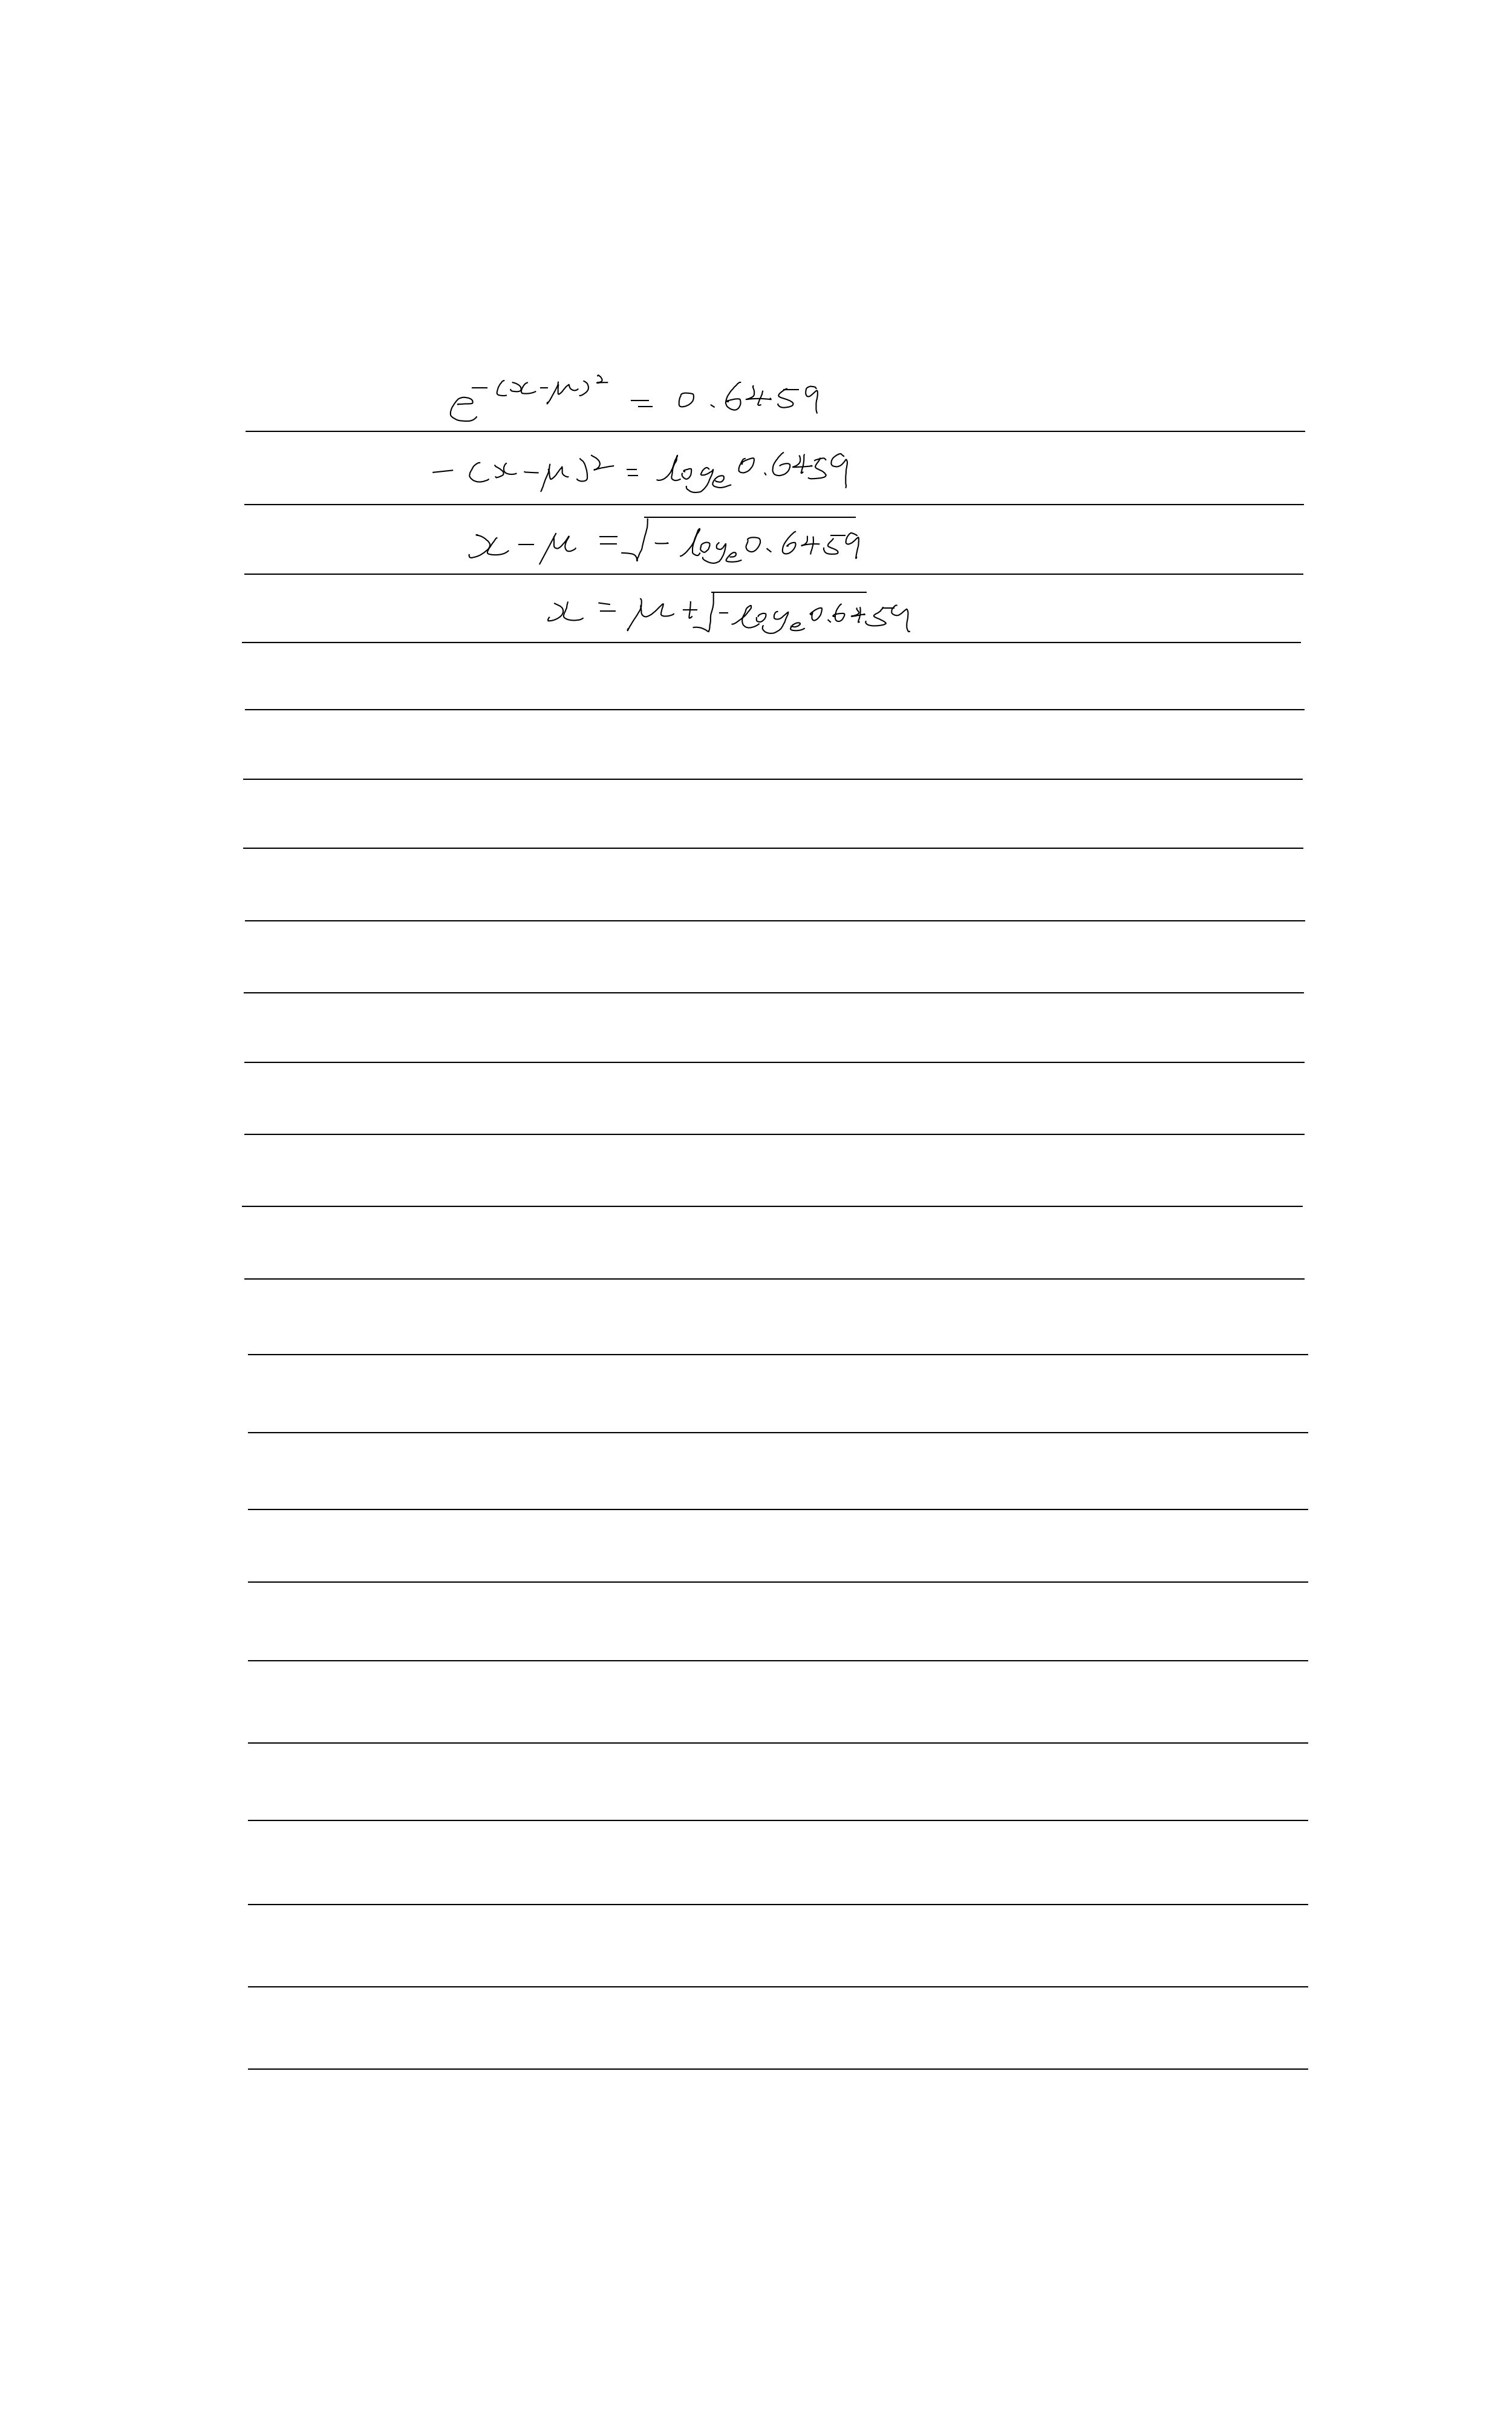 e^{-(x-μ)^2} = 0.6459
-(x-μ)^2 = log_e 0.6459
x-μ = √(-log_e 0.6459)
x = μ+√(-log_e 0.6459)